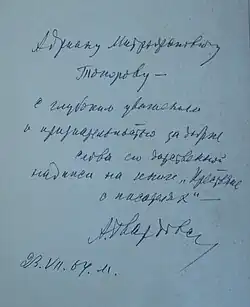 Адриану Митрофановичу
Топорову —
с глубоким уважением
и признательностью за добрые
слова
надписи на книге „Крестьяне
о писателях“ —
А. Твардовский
23.VII.67. М.